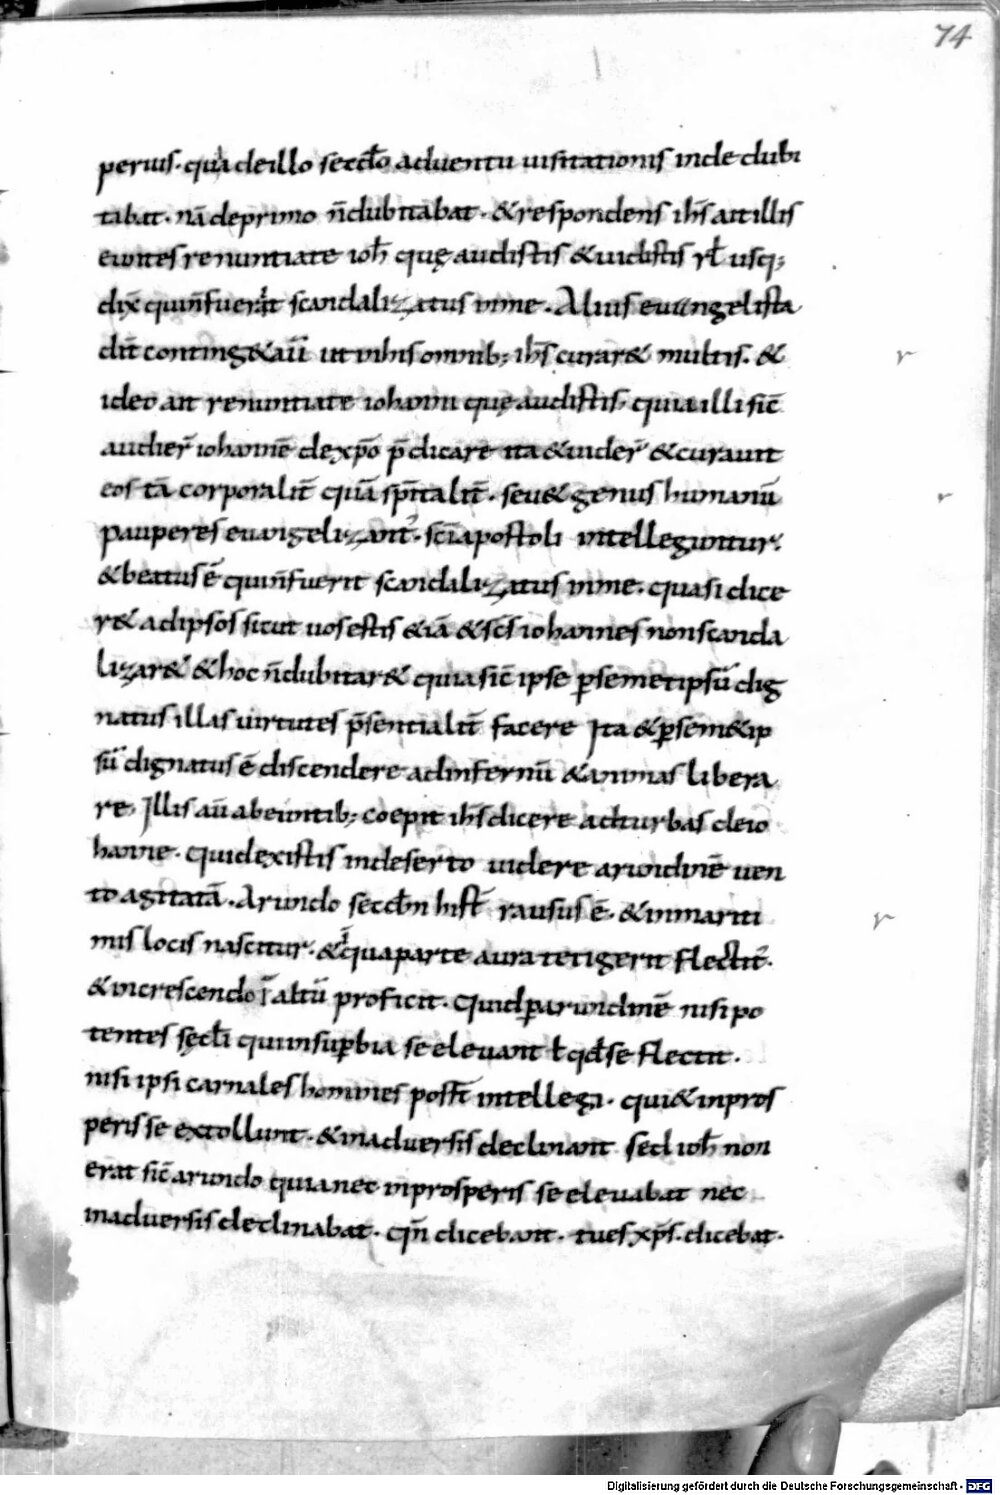 74
peruis. qua de illo secdo aduentu uisitationis inde dubi
tabat. nā deprimo n̄ dubitabat. & respondens ihs̄ ait illis
euntes renuntiate ioh̄ quę audistis & uidistis rł usq;
dix̄ qui n̄ fuerit scandalizatus inme. Alius euangelista
dix̄ conting& aūt ut inhis omnib; ihs̄ curar& multis. &
ideo ait renuntiate iohanni quę audistis, quia illi sic̄
audier̄ iohannē dexp̄o p̄dicare ita & uider̄ & curauit
eos tā corporalit̄ quā sp̄italit̄. seu & genus humanū
pauperes euuigelizant̄. sc̄i apostoli intelleguntur.
& beatus ē qui n̄ fuerit scandalizatus inme. quasi dice
r& adipsos sicut uos estis & iā & sc̄s iohannes non scanda
lizar& & hoc n̄ dubitar& quia sic̄ ipse p̱semetipsū dig
natus illas uirtutes p̄sentialit̄ facere Ita & p̱sem&ip
sū dignatus ē discendere adinfernū & animas libera
re, Illis aū abeuntib; coepit ihs̄ dicere adturbas deio
hanne. quid existis indeserto uidere arundinē uen
to agitatā. Arundo secdm hist̄ rausus ē. & inmariti
mis locis nascitur. & quaparte aura tetigerit flectit̄.
& increscendo ī altū proficit. quid p̱arundinē nisi po
tentes sęcłi qui insup̱bia se eleuant ł qd̄ se flectit.
nisi ipsi carnales homines poss̄t intellegi. qui & inpros
peris se extollunt. & inaduersis declinant sed ioh̄ non
erat sic̄ arundo quia nec inprosperis se eleuabat nec
inaduersis declinabat. qn̄ dicebant. tu es xp̄s. dicebat.
Digitalisierung gefördert durch die Deutsche Forschungsgemeinschaft - DFG